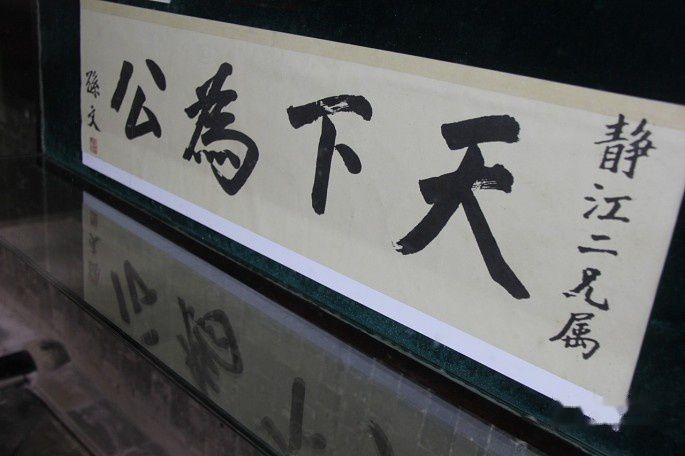 静江二兄属
天下為公
孫文